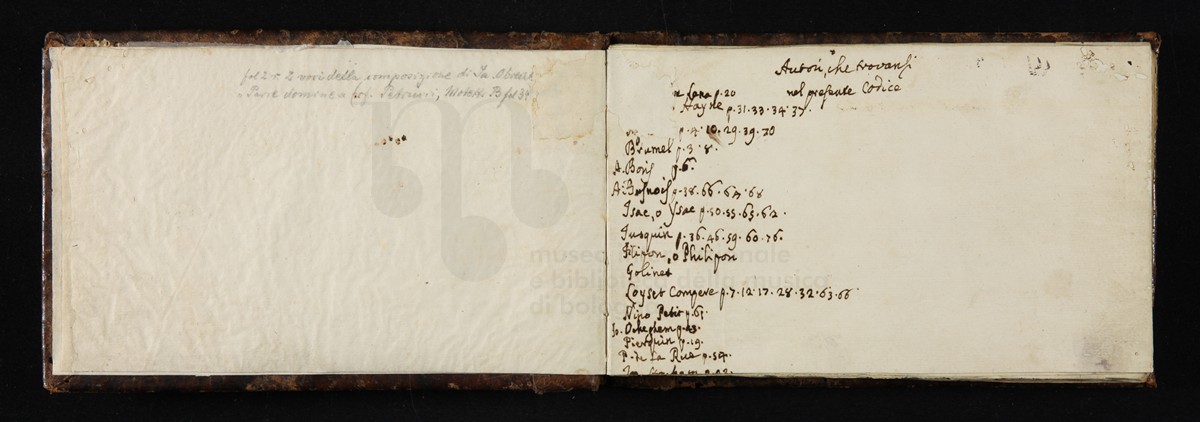 fol 2 r 2 voci della composizione di Ja. Obreht
Parce domine a Petrucci, Motett. B fol 34
Autori, che trovansi
nel presente Codice
p. 20
Hayne p. 31. 33. 34. 37.
p. 4. 10. 29. 39. 70
Brumel p. 3. 8.
A. Boris p. 6.
A. Busnois p. 38. 66. 67. 68
Isac, o Ysac p. 50. 55. 63. 62.
Iusquin p. 36. 46. 59. 60. 76.
Filipon, o Philipon
Golinet
Loyset Compere p. 7. 12. 17. 28. 32. 63. 66
Nino Petit p. 61
Jo. Ockeghem p. 23.
Pietrquin p. 19.
P. de la Rue p. 59.
museo internazionale
e biblioteca della musica
di bologna